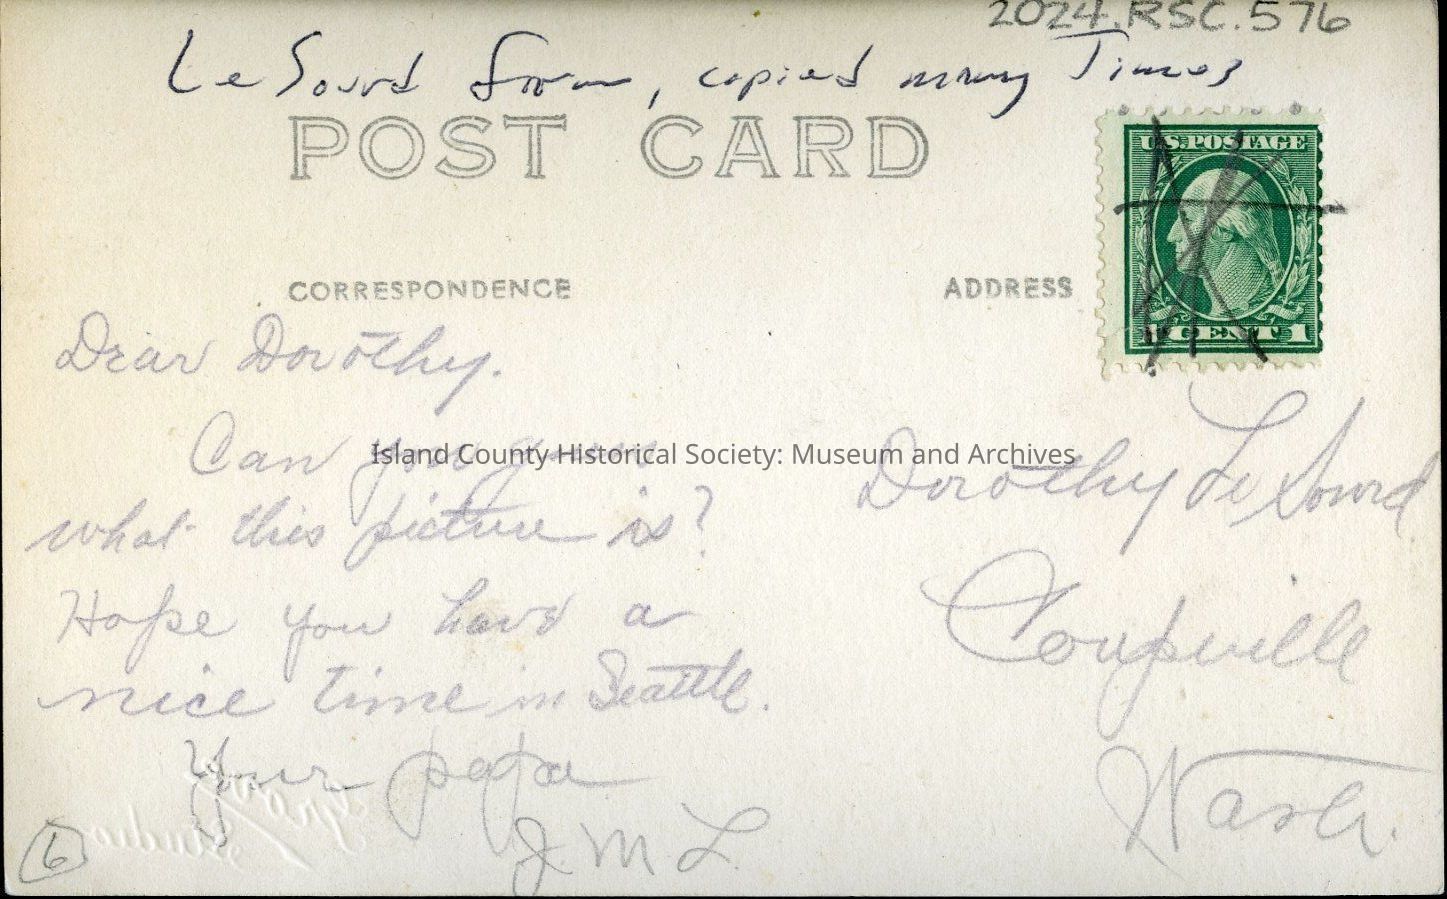 2024.RSC.576
Le Sourd Farm, copied many Times
POST CARD
U.S. POSTAGE
1 CENT 1
CORRESPONDENCE
ADDRESS
Dear Dorothy.
Can you guess
Island County Historical Society: Museum and Archives
what this picture is?
Hope you have a
nice time in Seattle.
Your papa
J. M. L.
Dorothy Le Sourd
Coupeville
Wash.
6
Studio